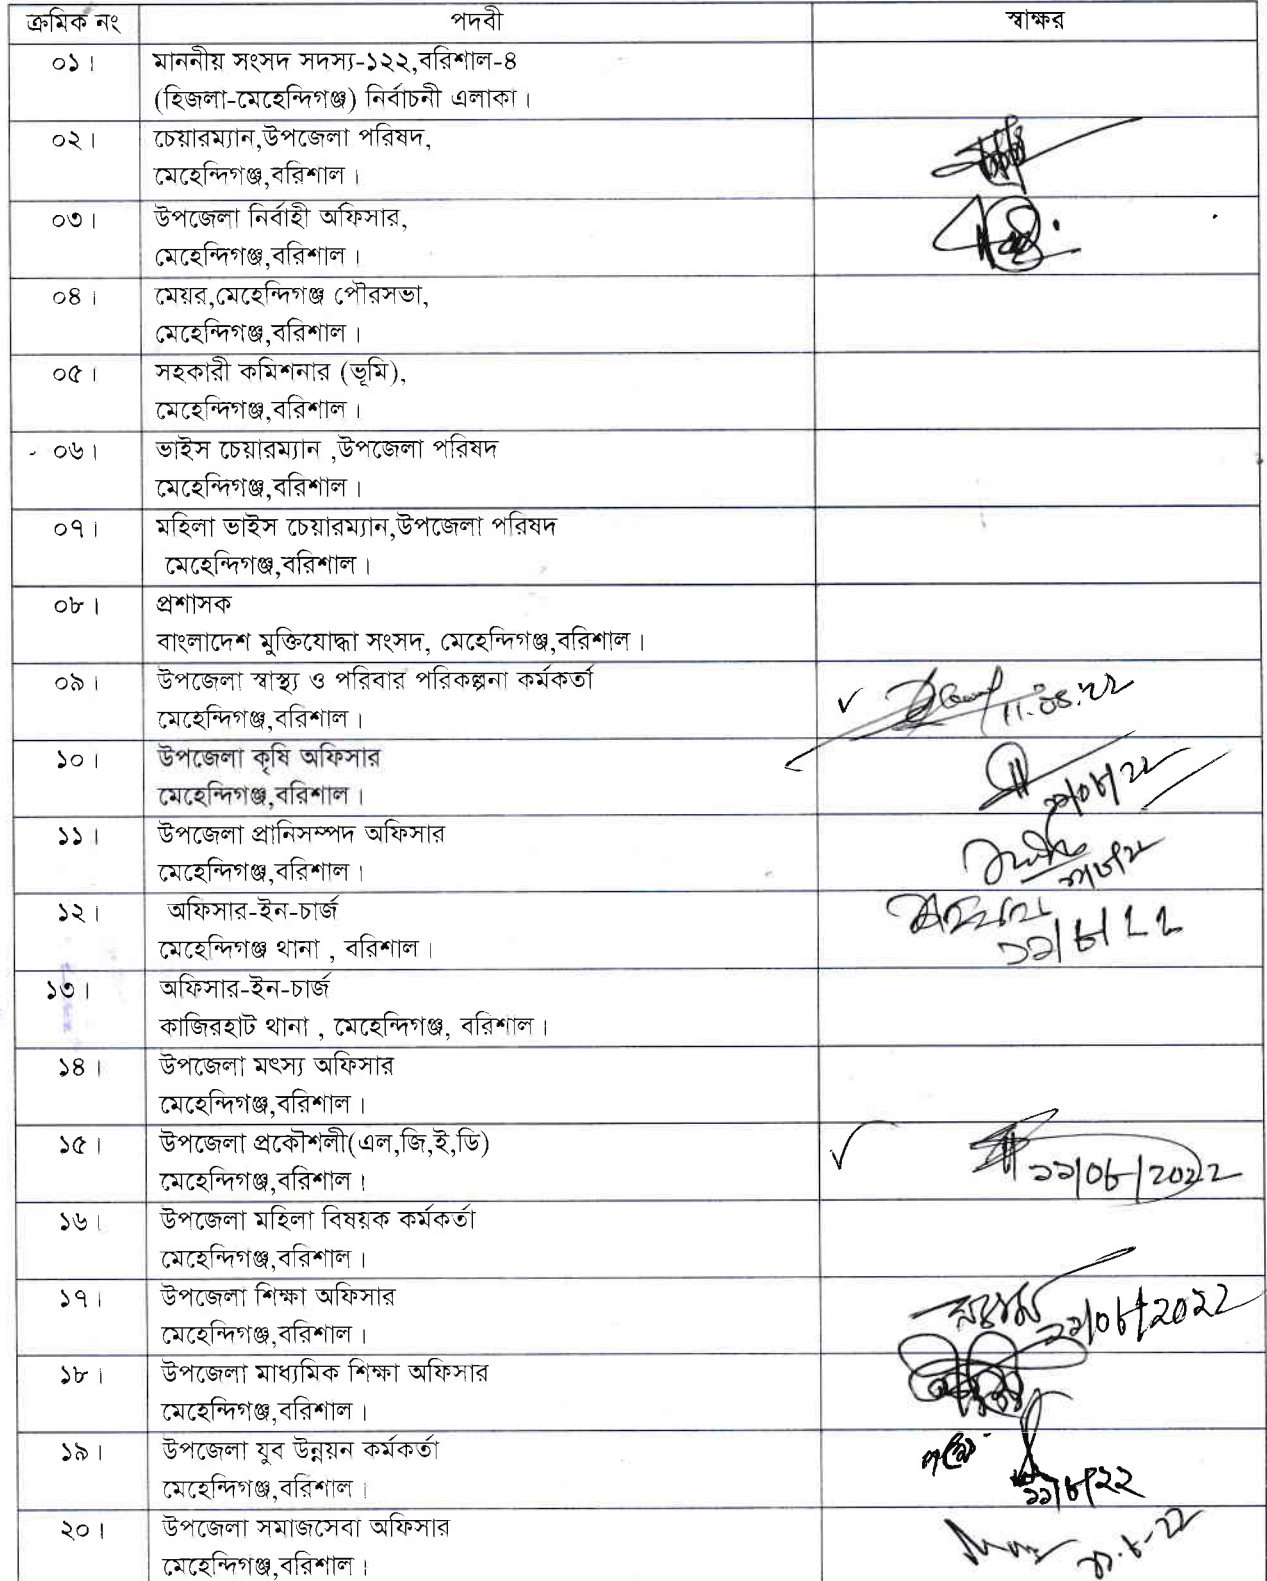 ক্রমিক নং পদবী স্বাক্ষর
০১। মাননীয় সংসদ সদস্য-১২২,বরিশাল-৪
(হিজলা-মেহেন্দিগঞ্জ) নির্বাচনী এলাকা।
০২। চেয়ারম্যান,উপজেলা পরিষদ,
মেহেন্দিগঞ্জ,বরিশাল।
০৩। উপজেলা নির্বাহী অফিসার,
মেহেন্দিগঞ্জ,বরিশাল।
০৪। মেয়র,মেহেন্দিগঞ্জ পৌরসভা,
মেহেন্দিগঞ্জ,বরিশাল।
০৫। সহকারী কমিশনার (ভূমি),
মেহেন্দিগঞ্জ,বরিশাল।
০৬। ভাইস চেয়ারম্যান ,উপজেলা পরিষদ
মেহেন্দিগঞ্জ,বরিশাল।
০৭। মহিলা ভাইস চেয়ারম্যান,উপজেলা পরিষদ
মেহেন্দিগঞ্জ,বরিশাল।
০৮। প্রশাসক
বাংলাদেশ মুক্তিযোদ্ধা সংসদ, মেহেন্দিগঞ্জ,বরিশাল।
০৯। উপজেলা স্বাস্থ্য ও পরিবার পরিকল্পনা কর্মকর্তা
মেহেন্দিগঞ্জ,বরিশাল। 11.08.22
১০। উপজেলা কৃষি অফিসার
মেহেন্দিগঞ্জ,বরিশাল। ১১/০৮/২২
১১। উপজেলা প্রানিসম্পদ অফিসার
মেহেন্দিগঞ্জ,বরিশাল।
১২। অফিসার-ইন-চার্জ
মেহেন্দিগঞ্জ থানা , বরিশাল। ১১/৮/২২
১৩। অফিসার-ইন-চার্জ
কাজিরহাট থানা , মেহেন্দিগঞ্জ, বরিশাল।
১৪। উপজেলা মৎস্য অফিসার
মেহেন্দিগঞ্জ,বরিশাল।
১৫। উপজেলা প্রকৌশলী(এল,জি,ই,ডি)
মেহেন্দিগঞ্জ,বরিশাল। ১১/০৮/২০২২
১৬। উপজেলা মহিলা বিষয়ক কর্মকর্তা
মেহেন্দিগঞ্জ,বরিশাল।
১৭। উপজেলা শিক্ষা অফিসার
মেহেন্দিগঞ্জ,বরিশাল। ১১/০৮/২০২২
১৮। উপজেলা মাধ্যমিক শিক্ষা অফিসার
মেহেন্দিগঞ্জ,বরিশাল।
১৯। উপজেলা যুব উন্নয়ন কর্মকর্তা
মেহেন্দিগঞ্জ,বরিশাল। ১১/৮/২২
২০। উপজেলা সমাজসেবা অফিসার
মেহেন্দিগঞ্জ,বরিশাল।